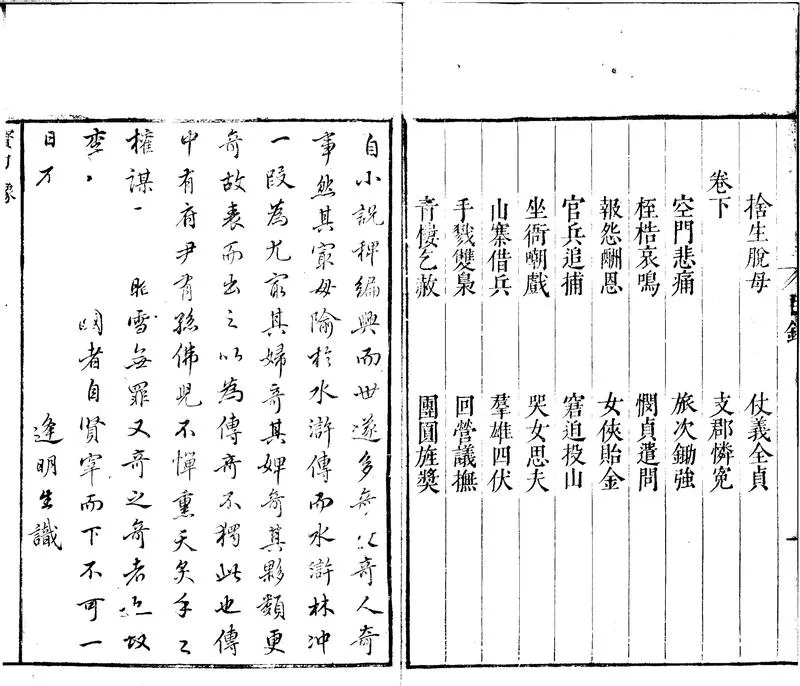 目錄
捨生脫母 仗義全貞
卷下 支郡憐冤
空門悲痛 旅次鋤強
桎梏哀鳴 憫貞遣問
報怨酬恩 女俠貽金
官兵追捕 窘迫投山
坐衙嘲戲 哭女思夫
山寨借兵 羣雄四伏
手戮雙梟 回營議撫
青樓乞赦 團圓旌獎
自小說稗編興而世遂多奇人奇
事然其最毋踰於水滸傳而水滸林冲
一段為尤最其婦奇其婢奇其夥類更
奇故表而出之以為傳奇不獨此也傳
中有府尹有孫佛兒不憚熏天炙手之
權謀一 雪無罪又奇之奇者也故
者自賢宰而下不可一
日
逢明生識